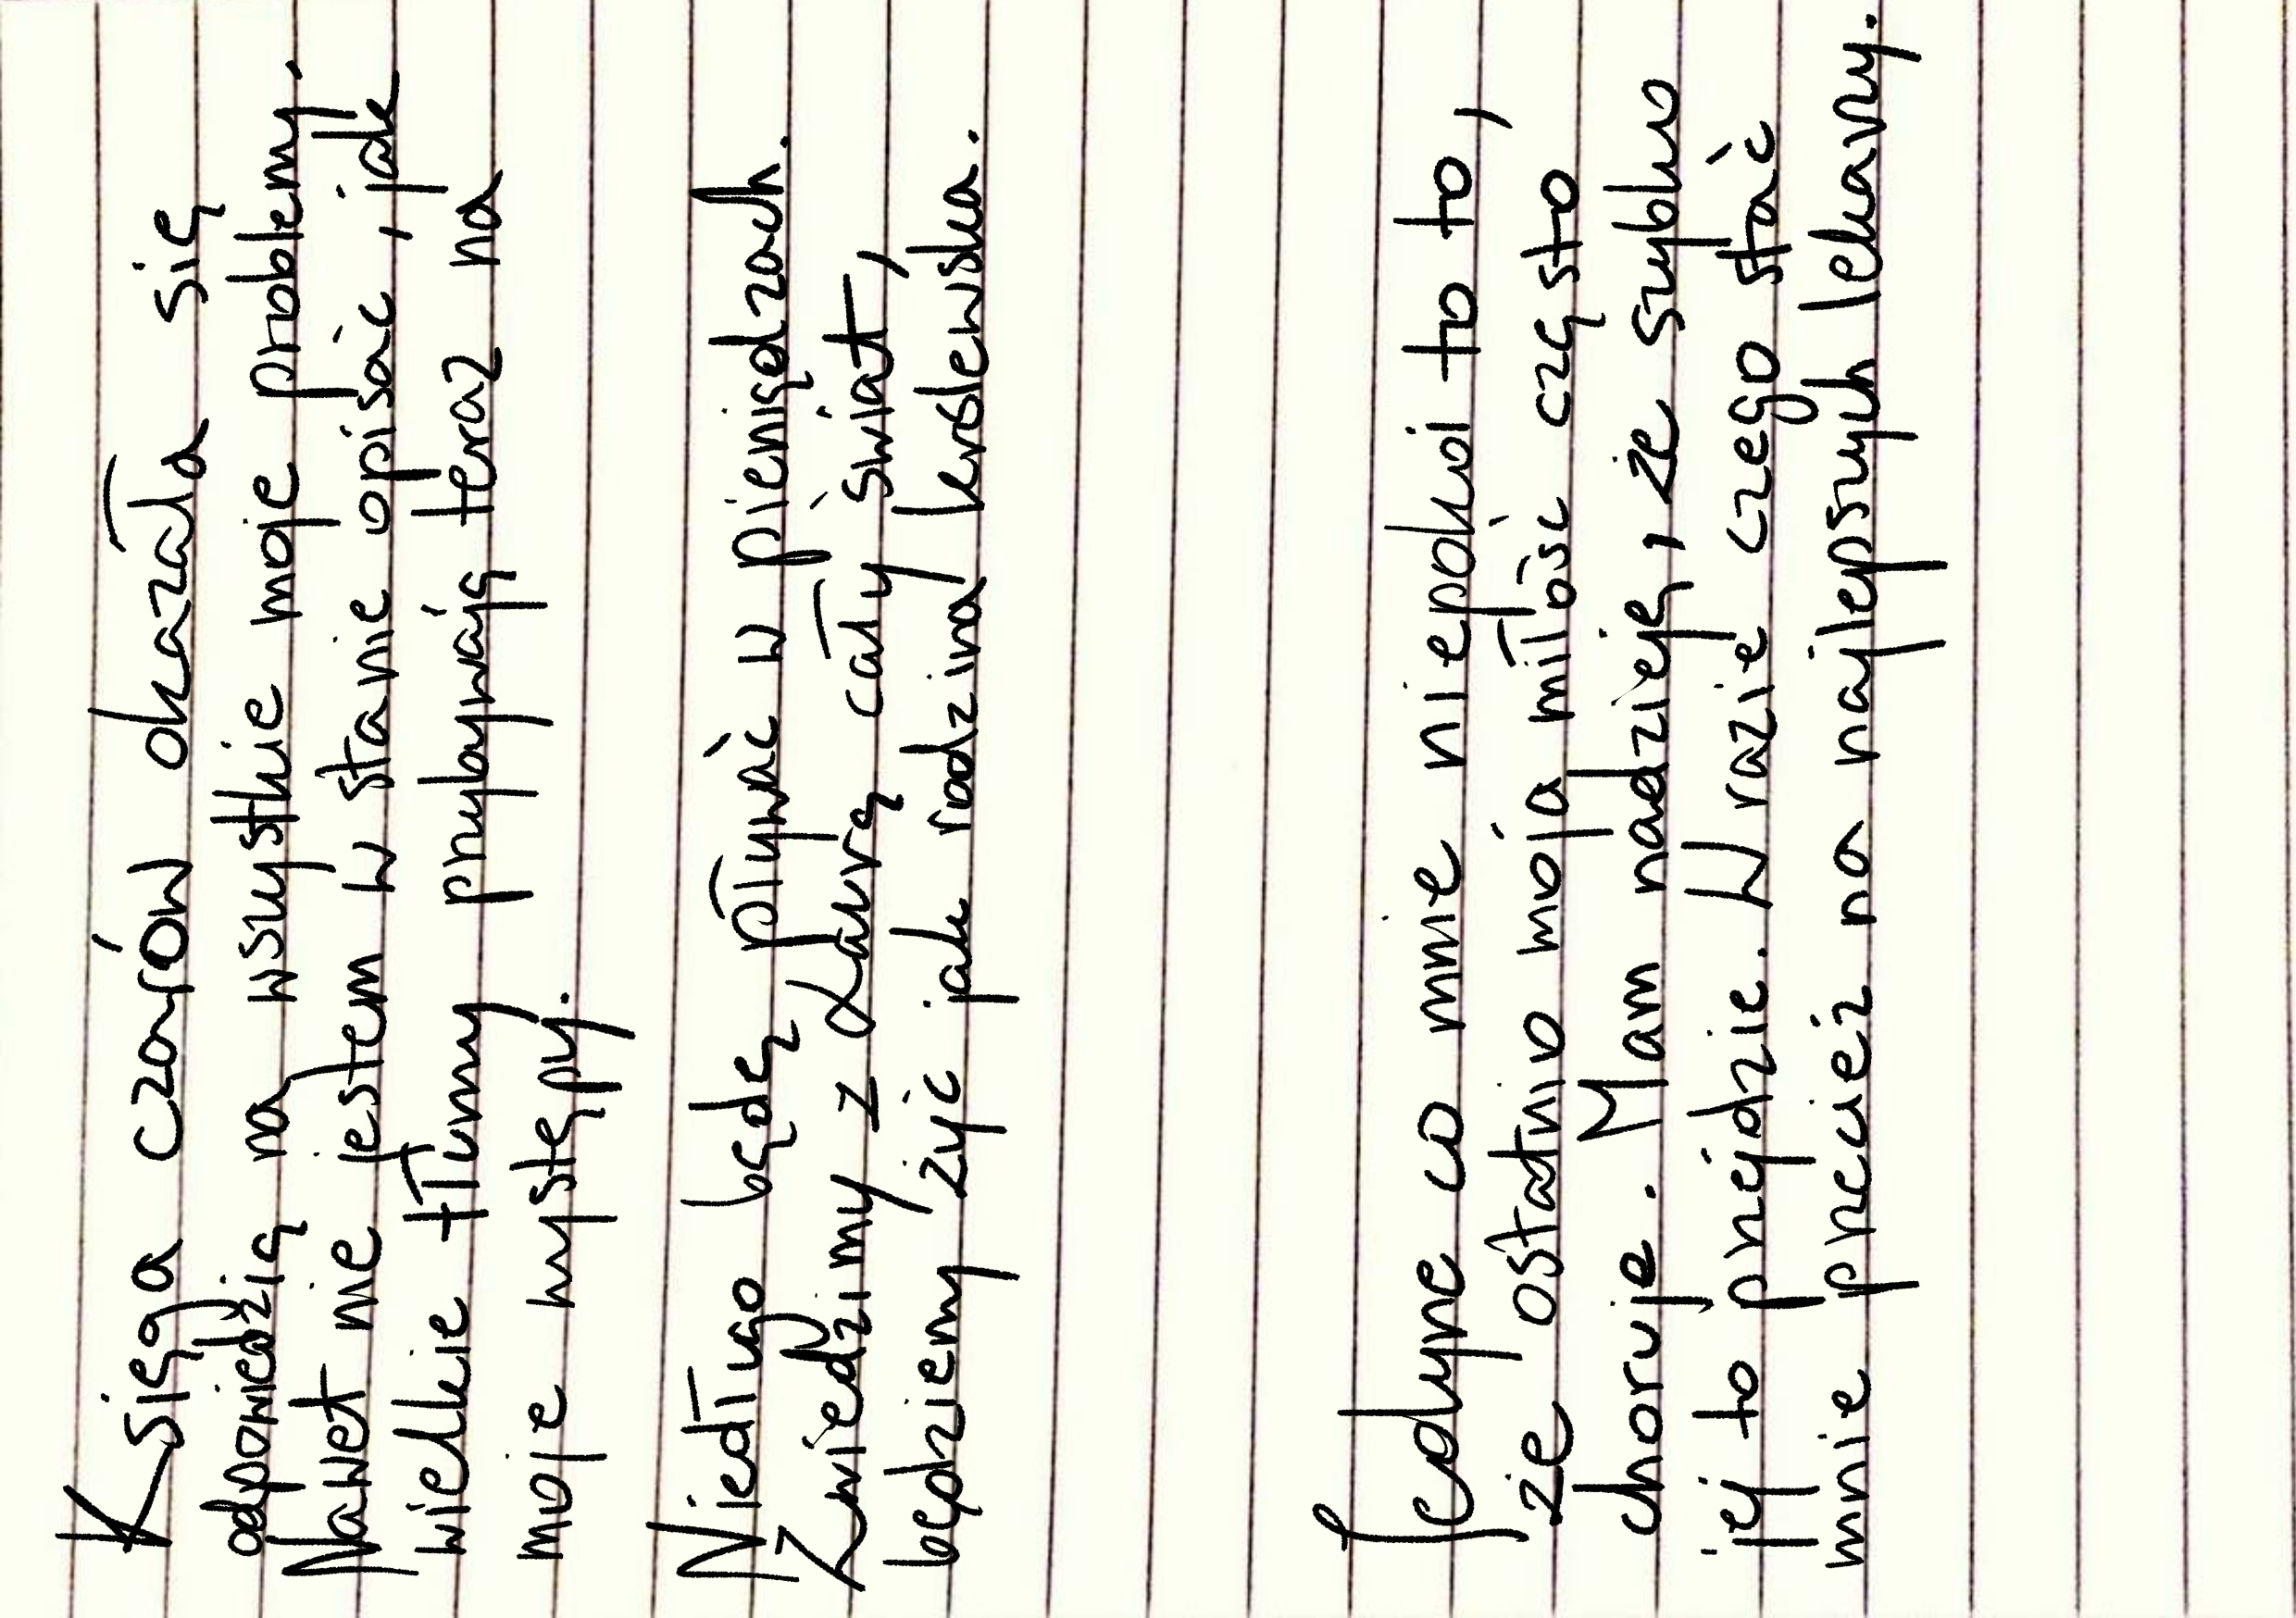 Księga czarów okazała się
odpowiedzią na wszystkie moje problemy.
Nawet nie jestem w stanie opisać, jak
wielkie tłumy przybywają teraz na
moje występy.
Niedługo będę pływać w pieniądzach.
Zwiedzimy z Laurą cały świat,
będziemy żyć jak rodzina królewska.
Jedyne co mnie niepokoi to to,
że ostatnio moja miłość często
choruje. Mam nadzieję, że szybko
jej to przejdzie. W razie czego stać
mnie przecież na najlepszych lekarzy.